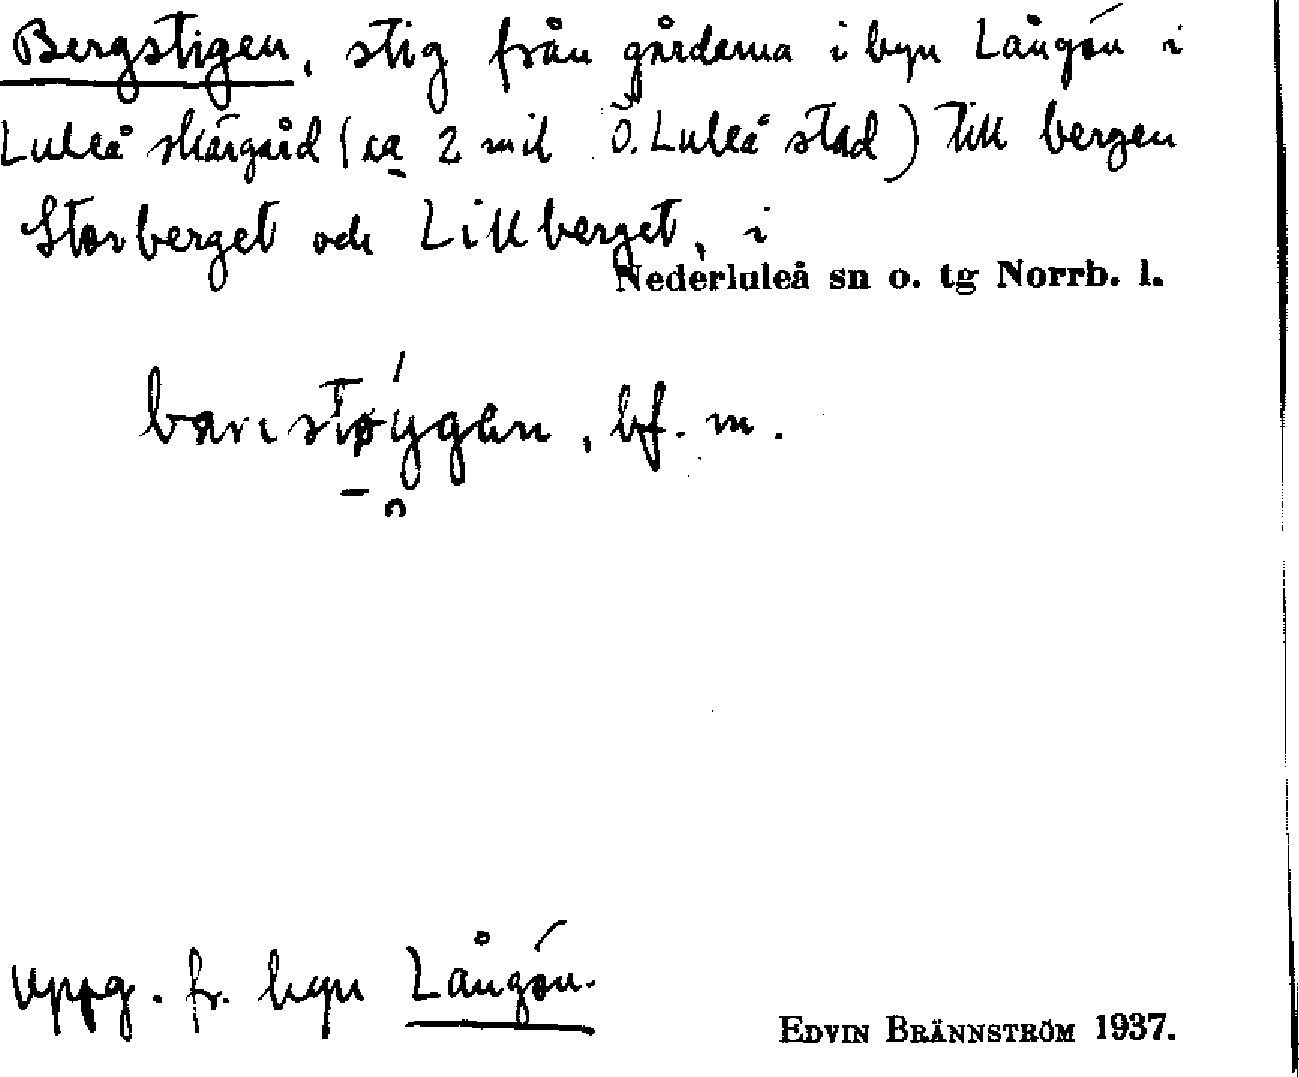 Bergstigen, stig från gårdarna i byn Långön i
Luleå skärgård (ca 2 mil Ö. Luleå stad) till bergen
Storberget och Lillberget, i
Nederluleå sn o. tg Norrb. l.
bf. m.
Uppg. fr. byn Långön.
EDVIN BRÄNNSTRÖM 1937.